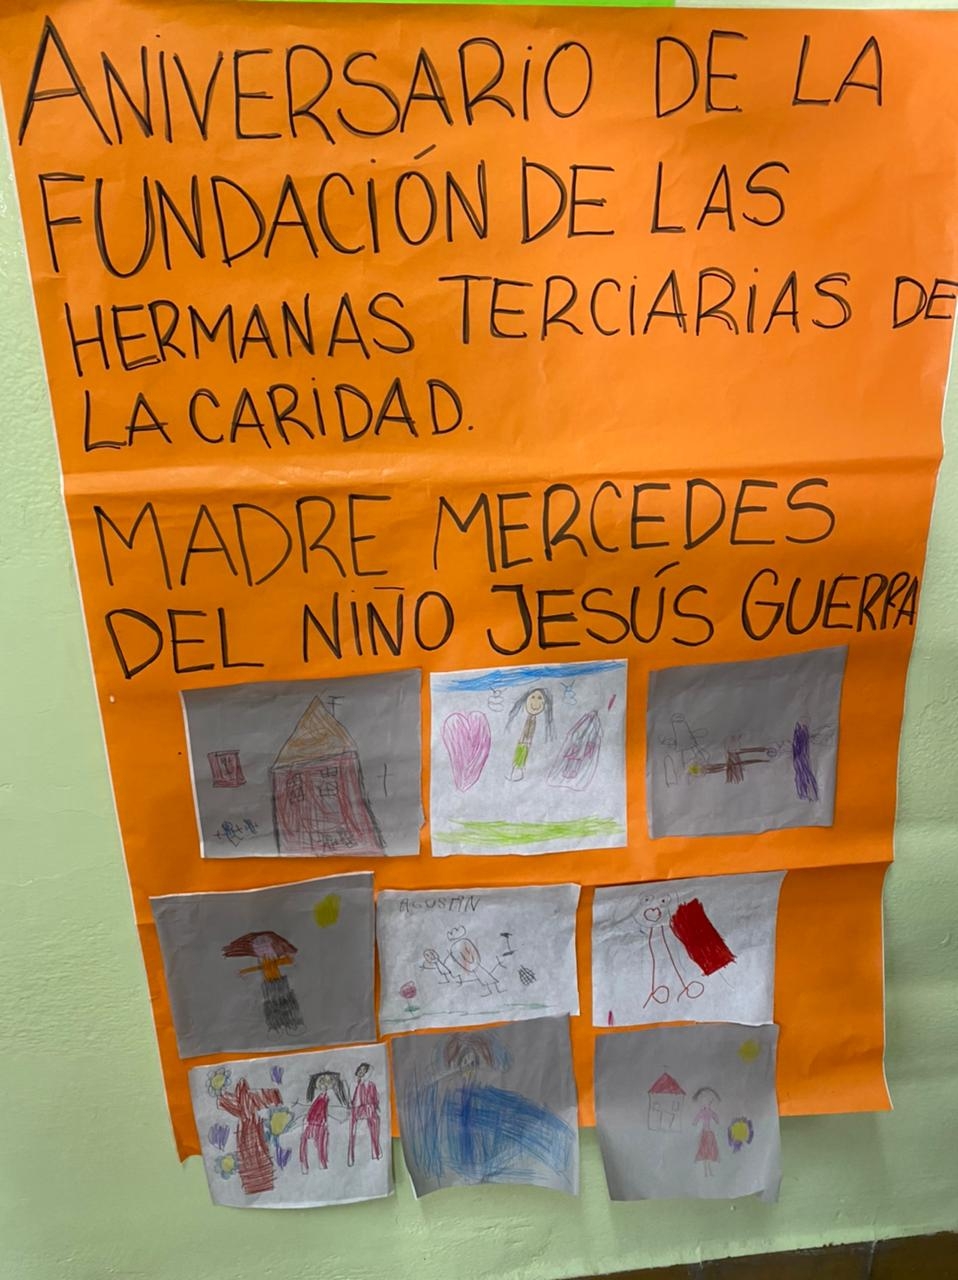 ANIVERSARIO DE LA
FUNDACIÓN DE LAS
HERMANAS TERCIARIAS DE
LA CARIDAD.
MADRE MERCEDES
DEL NIÑO JESÚS GUERRA
AGUSTIN